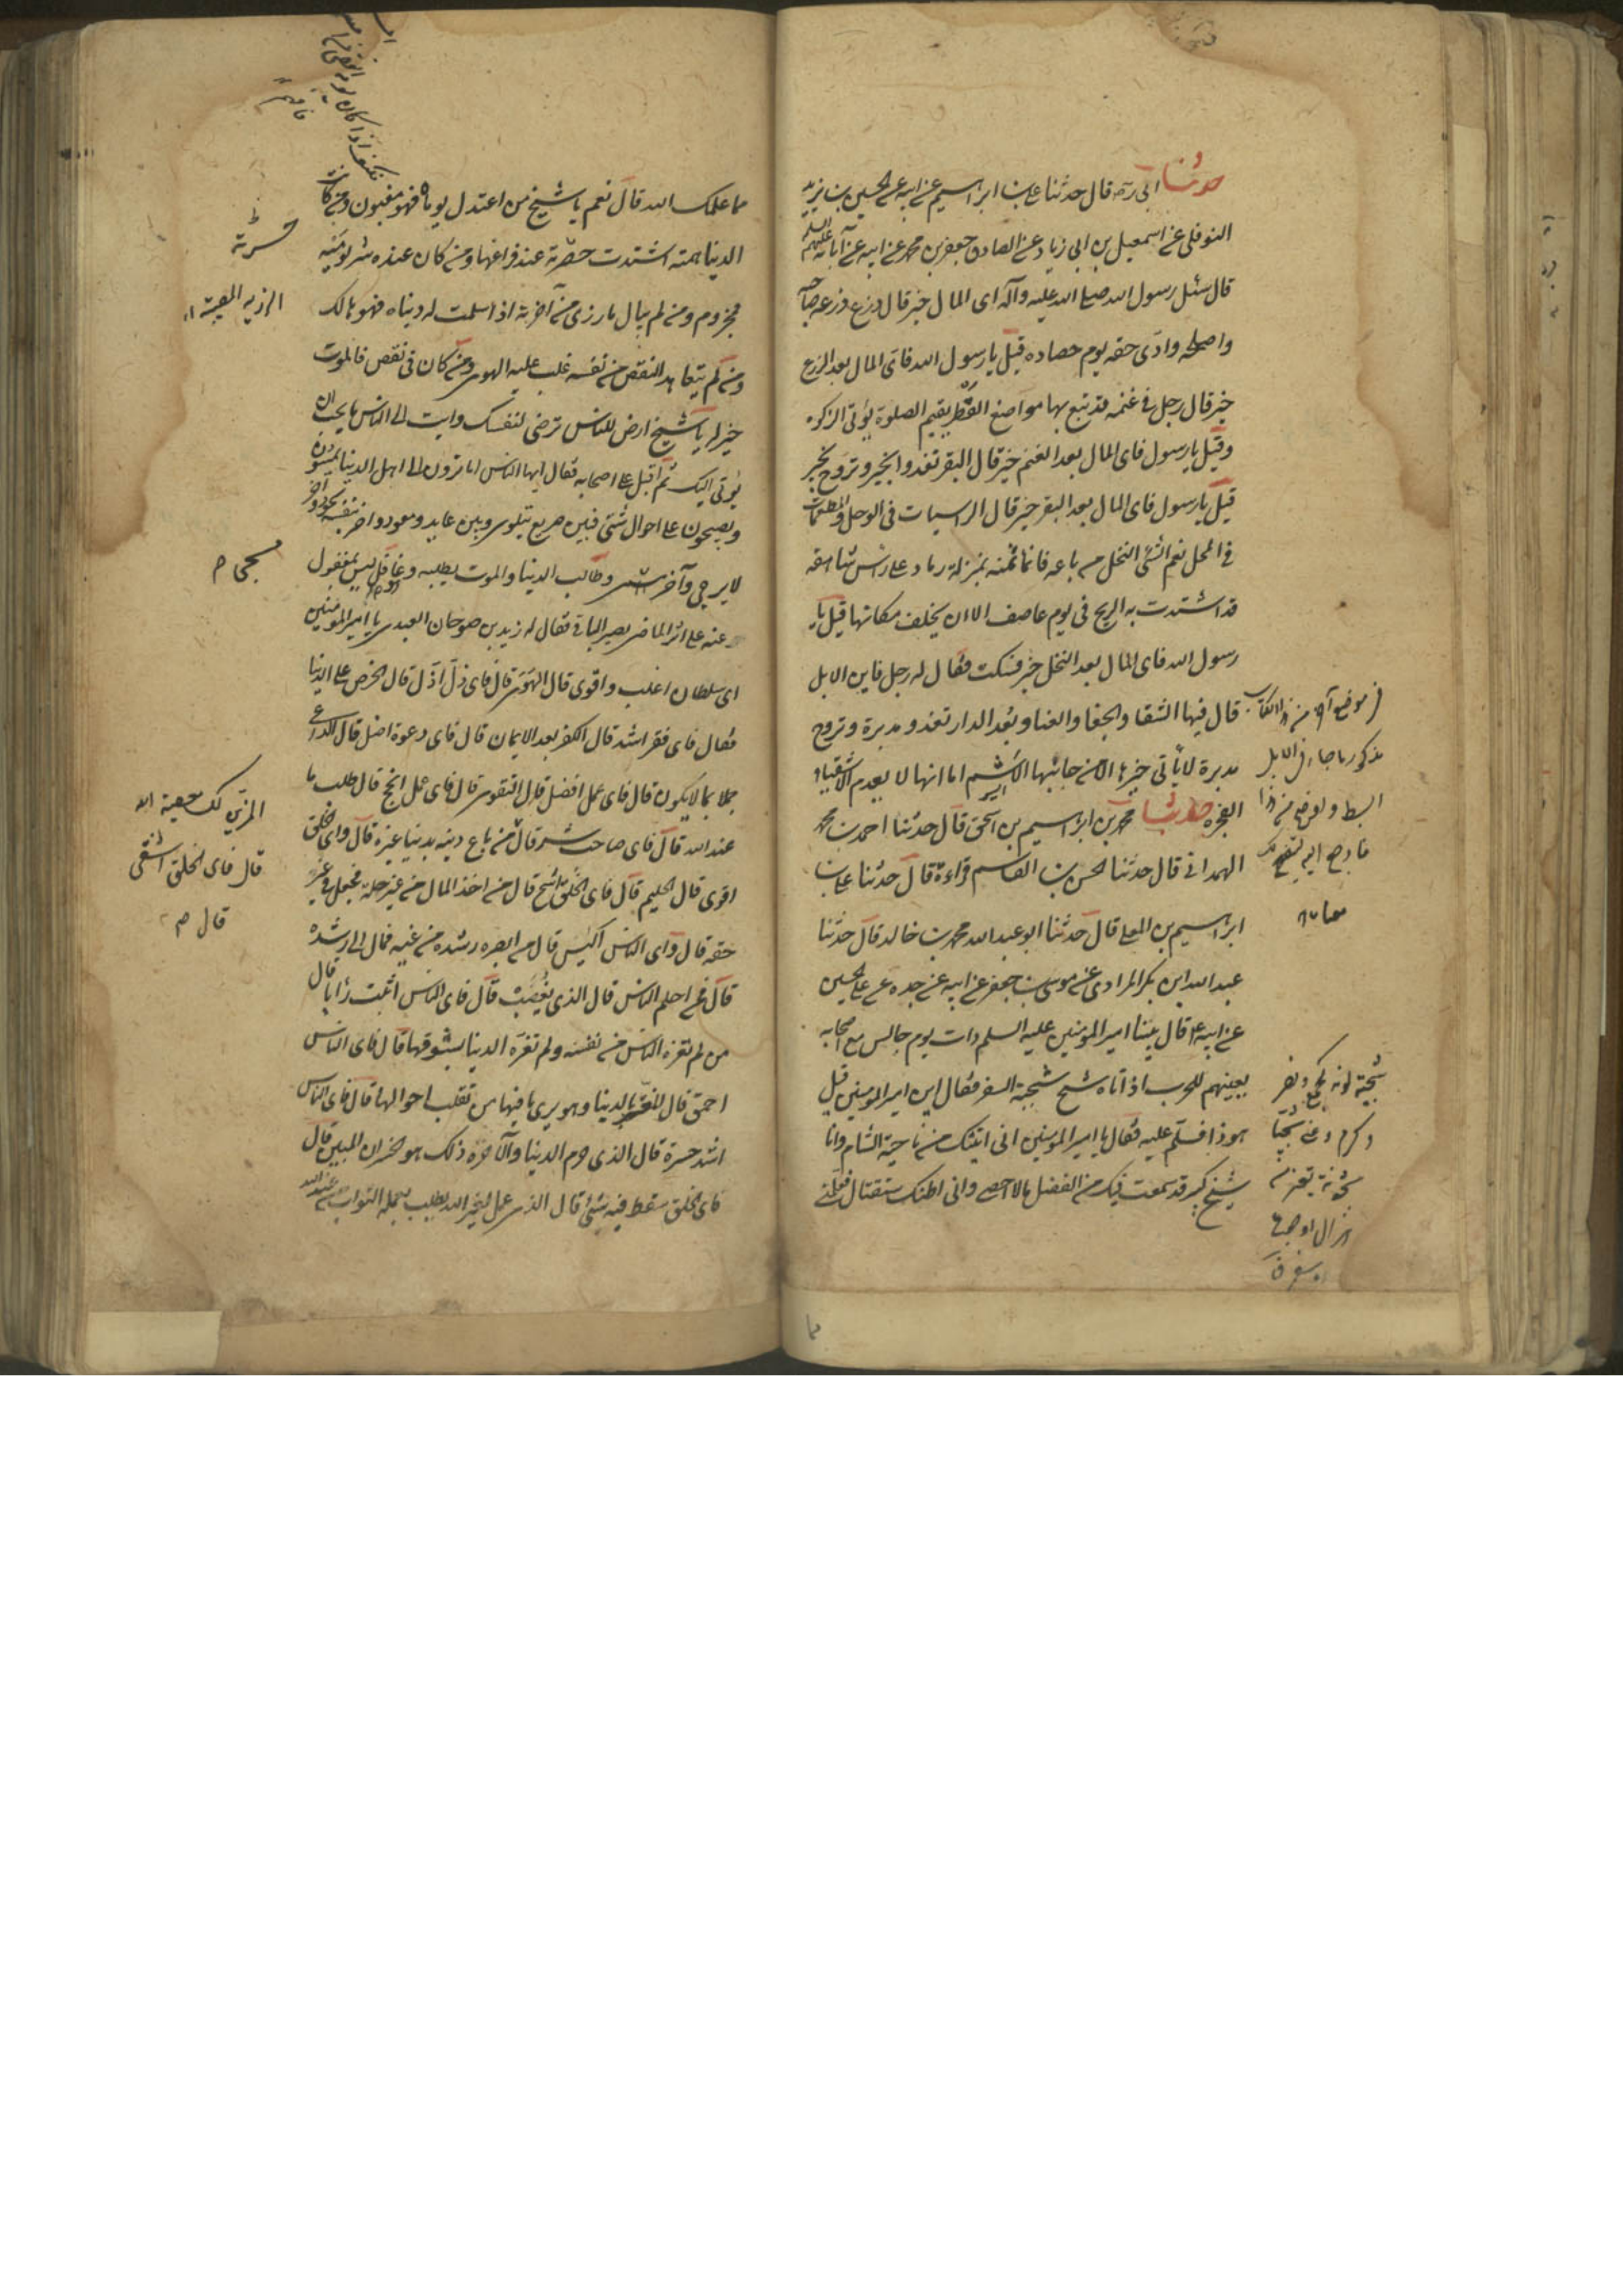 حدثنا ابي ره قال حدثنا علي بن ابراهيم عن ابيه عن الحسين بن يزيد
النوفلي عن اسمعيل بن ابي زياد عن الصادق جعفر بن محمد عن ابيه عن آبائه عليهم السلم
قال سئل رسول الله صلى الله عليه وآله اى المال خير قال زرع زرعه صاحبه
واصلحه وادى حقه يوم حصاده قيل يا رسول الله فاى المال بعد الزرع
خير قال رجل في غنمه قد تبع بها مواضع القطر يقيم الصلوة يؤتى الزكوة
وقيل يا رسول فاى المال بعد الغنم خير قال البقر تغدو بخير وتروح بخير
قيل يا رسول فاى المال بعد البقر خير قال الراسيات في الوحل والمطعمات
في المحل نعم الشئ النخل من باعه فانما ثمنه بمنزلة رماد على راس شاهقه
قد اشتدت به الريح في يوم عاصف الا ان يخلف مكانها قيل يا
رسول الله فاى المال بعد النخل خير فسكت فقال له رجل فاين الابل
قال فيها الشقا والجفا والعنا وبعد الدار تغدو مدبرة وتروح
مدبرة لا يأتي خيرها الا من جانبها الاشئم اما انها لا يعدم الاشقياء
الفجره حدثنا محمد بن ابراهيم بن اسحق قال حدثنا احمد بن محمد
الهمداني قال حدثنا الحسن بن القاسم قراءة قال حدثنا علي بن
ابراهيم بن المعلى قال حدثنا ابو عبد الله محمد بن خالد قال حدثنا
عبد الله ابن بكر المرادى عن موسى بن جعفر عن ابيه عن جده عن علي بن الحسين
عن ابيه ع قال بينا امير المومنين عليه السلم ذات يوم جالس مع اصحابه
يعبيهم للحرب اذ اتاه شيخ شجبة السفر فقال اين امير المومنين قيل
هو ذا فسلم عليه فقال يا امير المومنين اني اتيتك من ناحية الشام وانا
شيخ كبير قد سمعت فيك من الفضل ما لا احصى واني اظنك ستقتال فعلمني
مذكور ما جاء في الابل
مما علمك الله قال نعم يا شيخ من اعتدل يوماه فهو مغبون ومن كانت
الدنيا همته اشتدت حسرته عند فراقها ومن كان عنده شر يوميه
فمحروم ومن لم يبال ما رزى من آخرته اذا سلمت له دنياه فهو هالك
ومن لم يتعاهد النقص من نفسه غلب عليه الهوى ومن كان في نقص فالموت
خير له يا شيخ ارض للناس ترضى لنفسك وايت الى الناس ما يحب ان
يؤتى اليك ثم اقبل على اصحابه فقال ايها الناس اما ترون الى اهل الدنيا يمسون
ويصبحون على احوال شتى فبين صريع يتلوى وبين عايد ومعود واخر بنفسه يجود واخر
لا يرجى وآخر مسجى وطالب الدنيا والموت يطلبه وغافل ليس بمغفول
عنه على اثر الماضي يصير الباقي فقال له زيد بن صوحان العبدي يا امير المومنين
اى سلطان اغلب واقوى قال الهوى قال فاى ذل اذل قال الحرص على الدنيا
فقال فاى فقر اشد قال الكفر بعد الايمان قال فاى دعوة اضل قال الداعي
بما لا يكون قال فاى عمل افضل قال التقوى قال فاى عمل انجح قال طلب ما
عند الله قال فاى صاحب شر قال من باع دينه بدنيا غيره قال واى الخلق
اقوى قال الحليم قال فاى الخلق اشح قال من اخذ المال من غير حله فجعله في غير
حقه قال واى الناس اكيس قال من ابصر رشده من غيه فمال الى رشده
قال فمن احلم الناس قال الذى لا يغضب قال فاى الناس اثبت رأيا قال
من لم تغره الناس من نفسه ولم تغره الدنيا بتشوقها قال فاى الناس
احمق قال المغتر بالدنيا وهو يرى ما فيها من تقلب احوالها قال فاى الناس
اشد حسرة قال الذى حرم الدنيا والآخرة ذلك هو الخسران المبين قال
فاى الخلق سقط فيه شئ قال الذى عمل لغير الله يطلب بعمله الثواب من عند الله
حسرته
الرزيه المصيبة
قال فاى الخلق اشقى
قال م